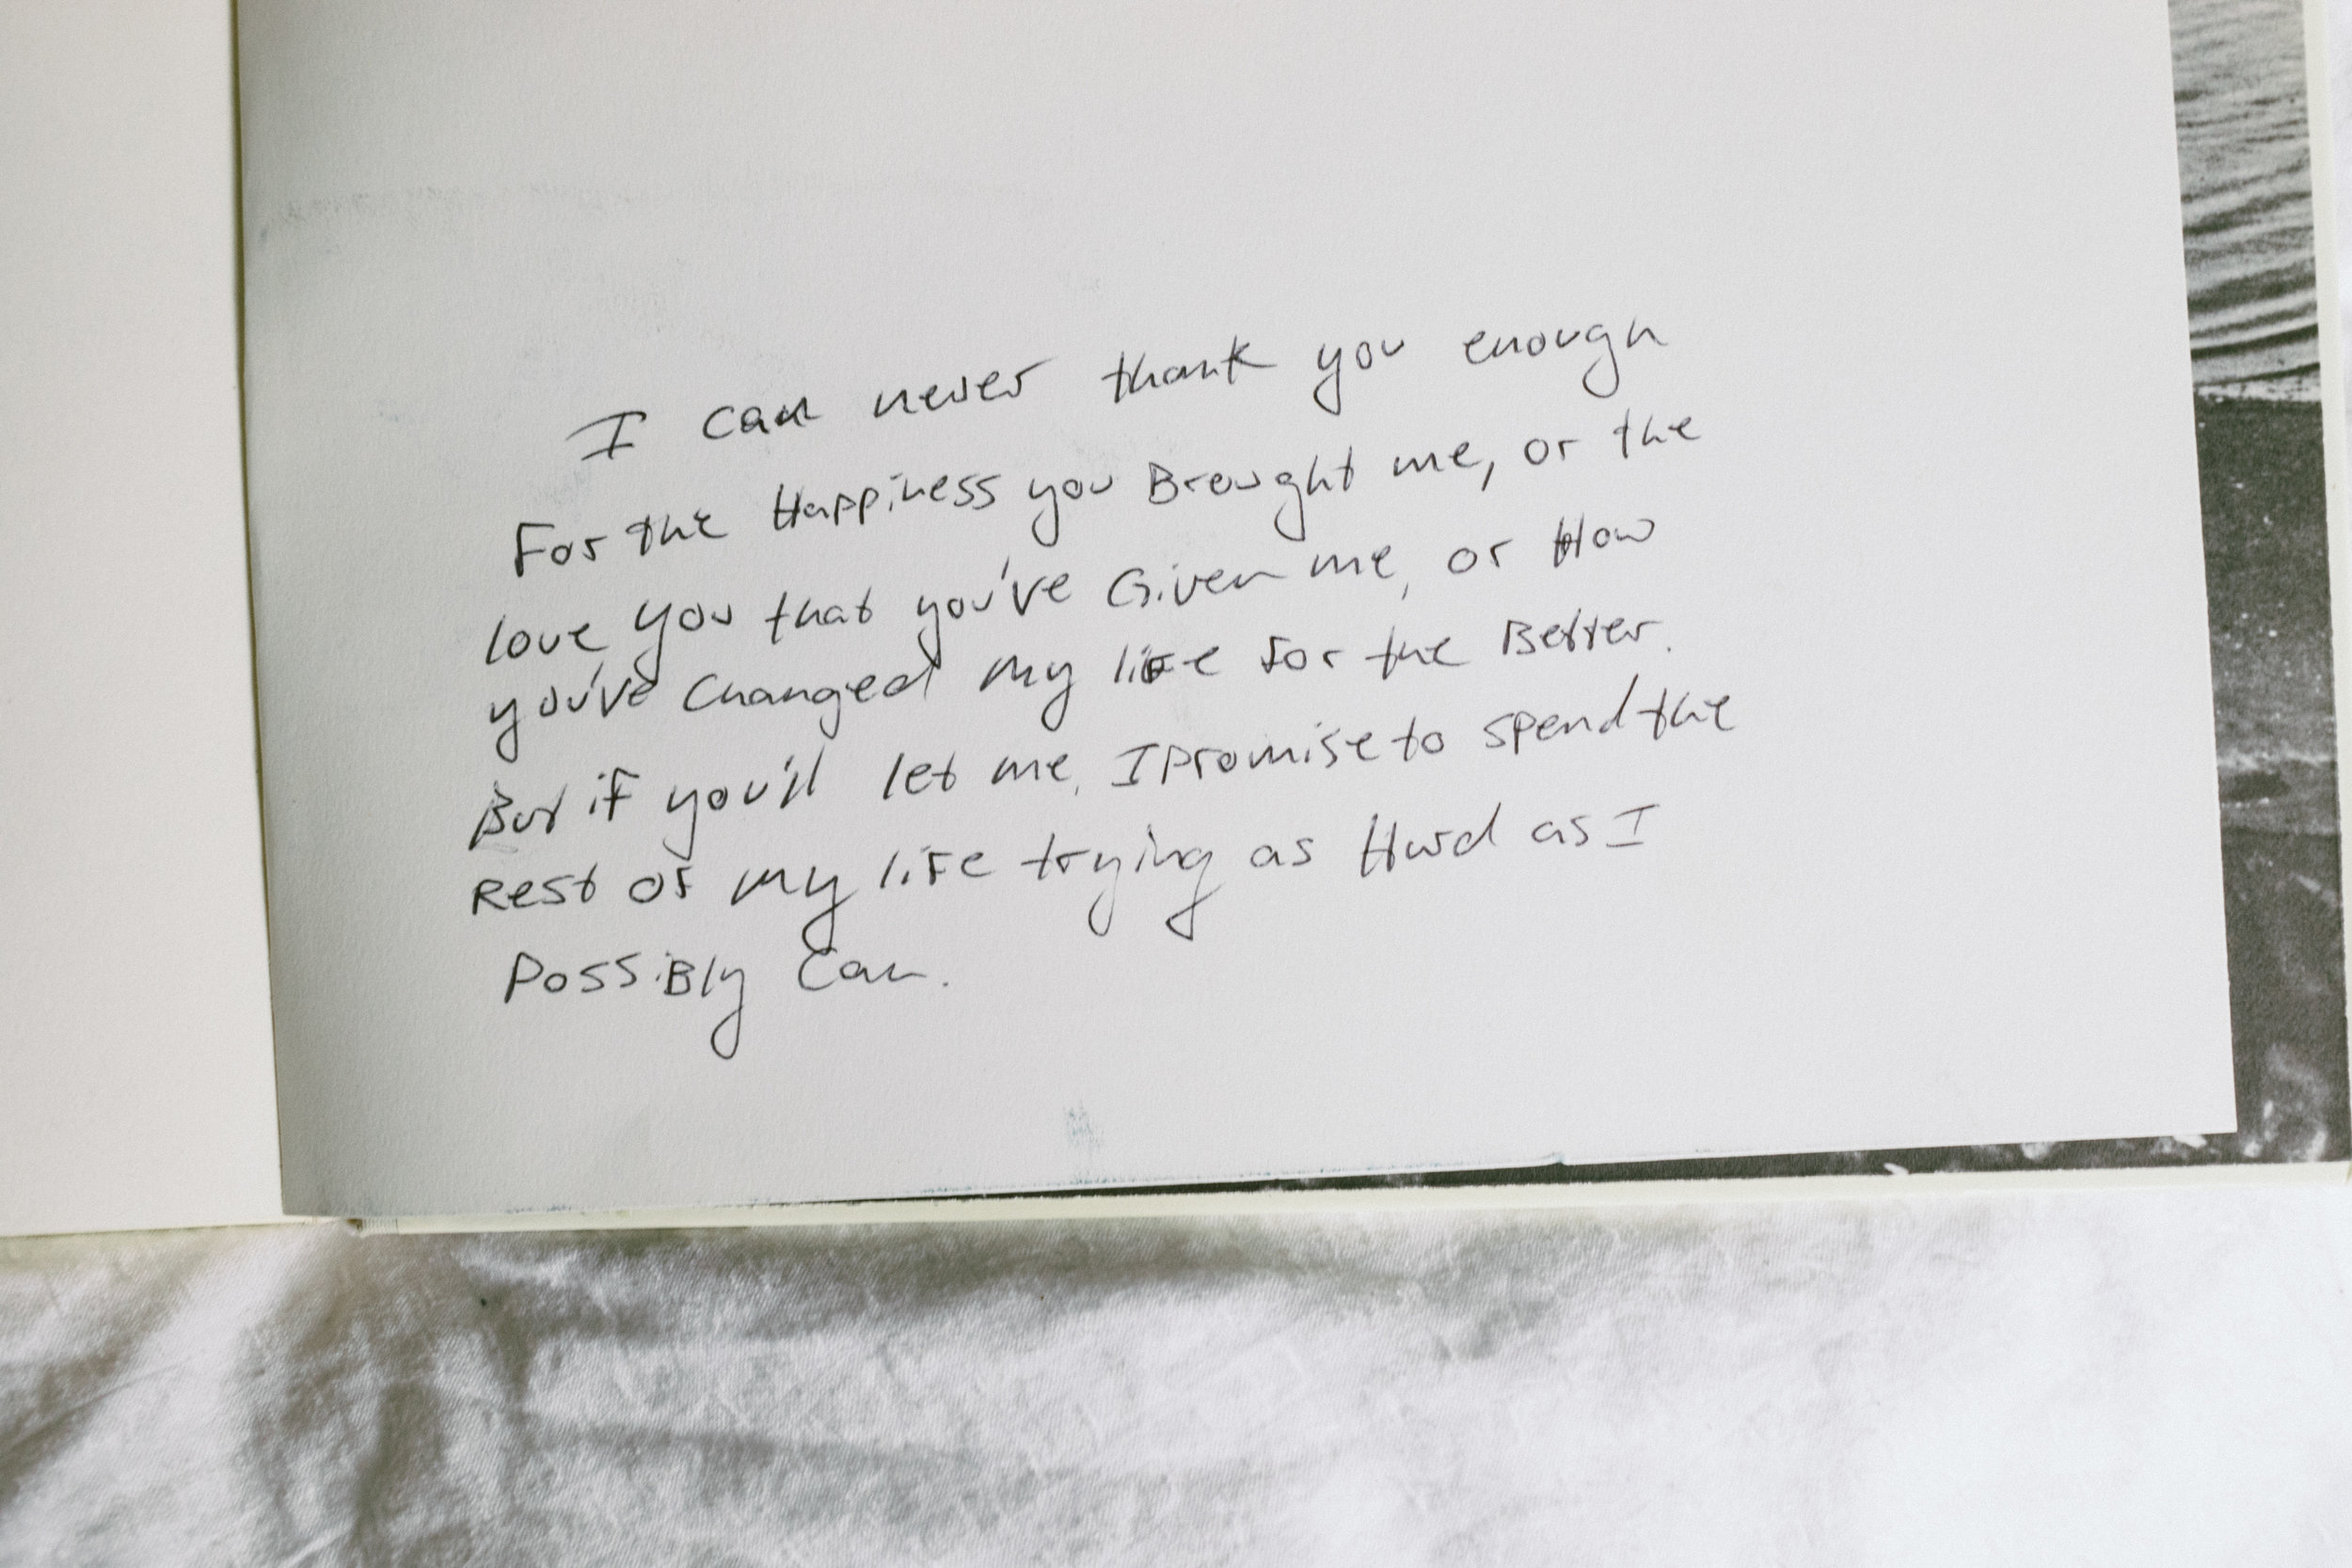 I can never thank you enough
For the Happiness you Brought me, or the
love you that you've Given me, or How
you've changed my life for the Better.
But if you'll let me, I promise to spend the
Rest of my life trying as Hard as I
PossiBly Can.